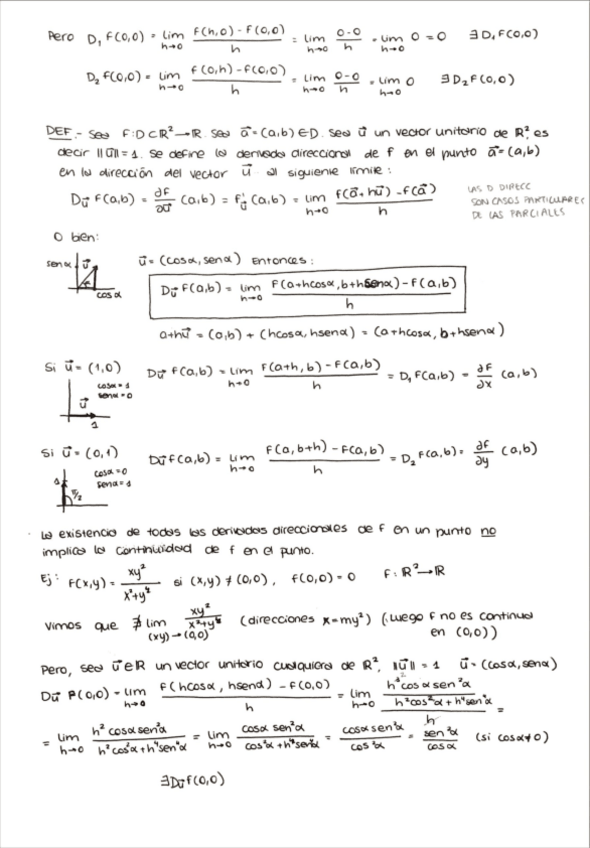 Pero D₁ f(0,0) = lim h→0 (f(h,0) - f(0,0))/h = lim h→0 (0-0)/h = lim h→0 0 = 0 ∃D₁f(0,0)
D₂ f(0,0) = lim h→0 (f(0,h) - f(0,0))/h = lim h→0 (0-0)/h = lim h→0 0 ∃D₂f(0,0)
DEF.- Sea f: D⊂ℝ²→ℝ. Sea a⃗ = (a,b) ∈ D. Sea u⃗ un vector unitario de ℝ², es
decir ||u⃗|| = 1. Se define la derivada direccional de f en el punto a⃗ = (a,b)
en la dirección del vector u⃗ al siguiente límite:
Du⃗ f(a,b) = ∂f/∂u⃗ (a,b) = f'u⃗ (a,b) = lim h→0 (f(a⃗+hu⃗) - f(a⃗))/h
LAS D DIRECC
SON CASOS PARTICULARES
DE LAS PARCIALES
O bien:
senα u⃗ cosα
u⃗ = (cosα, senα) Entonces:
Du⃗ f(a,b) = lim h→0 (f(a+hcosα, b+hsenα) - f(a,b))/h
a+hu⃗ = (a,b) + (hcosα, hsenα) = (a+hcosα, b+hsenα)
Si u⃗ = (1,0) Du⃗ f(a,b) = lim h→0 (f(a+h,b) - f(a,b))/h = D₁f(a,b) = ∂f/∂x (a,b)
cosα=1
senα=0
u⃗
1
Si u⃗ = (0,1) Du⃗ f(a,b) = lim h→0 (f(a,b+h) - f(a,b))/h = D₂f(a,b) = ∂f/∂y (a,b)
cosα=0
senα=1
1 π/2
· La existencia de todas las derivadas direccionales de f en un punto no
implica la continuidad de f en el punto.
Ej: f(x,y) = xy²/(x²+y⁴) si (x,y) ≠ (0,0), f(0,0) = 0 f: ℝ²→ℝ
Vimos que ∄ lim (x,y)→(0,0) xy²/(x²+y⁴) (direcciones x=my²) (Luego f no es continua
en (0,0))
Pero, sea u⃗∈ℝ un vector unitario cualquiera de ℝ², ||u⃗|| = 1 u⃗ = (cosα, senα)
Du⃗ f(0,0) = lim h→0 (f(hcosα, hsenα) - f(0,0))/h = lim h→0 ((h³cosα sen²α)/(h²cos²α + h⁴sen⁴α))/h =
= lim h→0 (h²cosα sen²α)/(h²cos²α + h⁴sen⁴α) = lim h→0 (cosα sen²α)/(cos²α + h²sen⁴α) = (cosα sen²α)/(cos²α) = sen²α/cosα (si cosα≠0)
∃Du⃗ f(0,0)